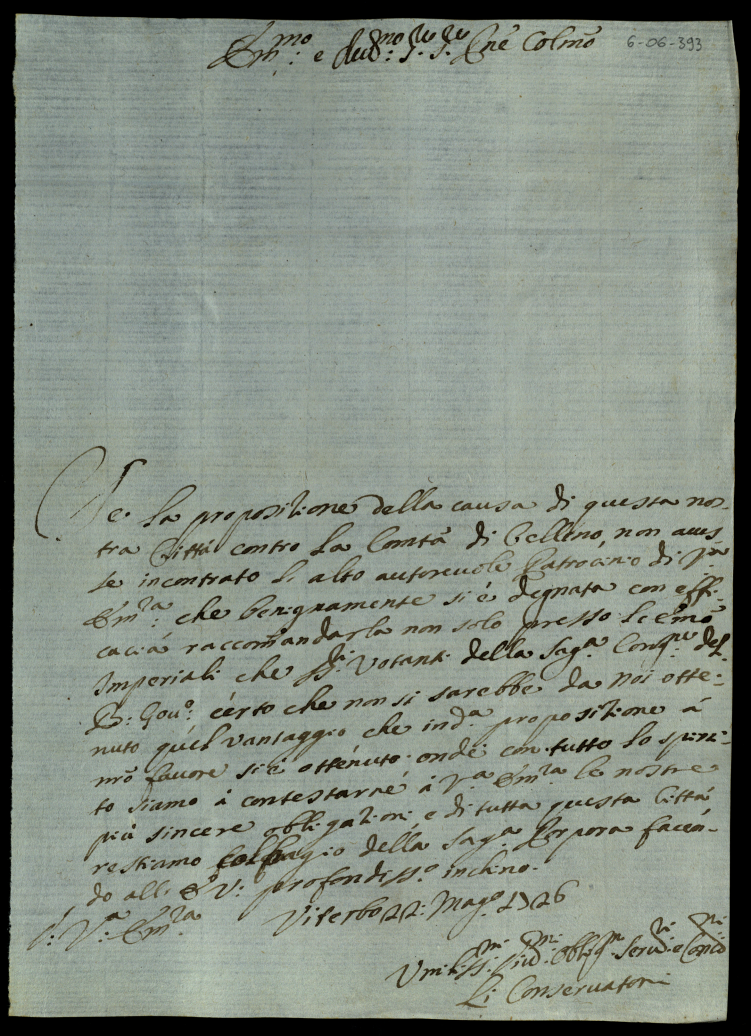 Em.mo e Rev.mo S.re S.re Pne Colmo
6-06-393
Se la propositione della causa di questa nos-
tra Città contro la Comtà di Celleno, non aves
se incontrato l'alto autorevole Patrocinio di V.ra
Em.za che benignamente si è degnata con effi-
cacia raccomandarla non solo presso l'Emo
Imperiali che SS.ri Votanti della Sag.a Cong.ne del
B: Gov.o certo che non si sarebbe da noi otte-
nuto quel vantaggio che in d.a propositione à
nro favore si è ottenuto: onde con tutto lo spiri-
to siamo à contestarne à V.ra Em.za le nostre
più sincere obligationi, e di tutta questa Città
restiamo della Sag.a Porpora facen-
do all' E. V. profondiss.o inchino.
D. V.ra Em.za Viterbo 22: Mag.o 1726
Umiliss.mi Div.mi Oblig.mi Serv.ri e
Li Conservatori